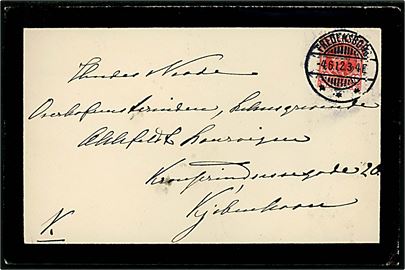 FREDENSBORG
4.6.12.3-4E
Hendes Naade
Overhofmesterinden, Lehnsgrevinde
Ahlefeldt Laurvigen
Kronprindsessegade 20
Kjöbenhavn
K.